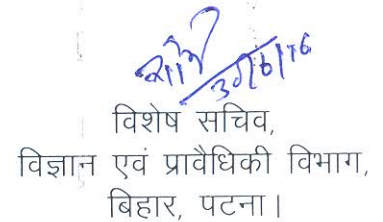 30/6/16
विशेष सचिव,
विज्ञान एवं प्रावैधिकी विभाग,
बिहार, पटना।